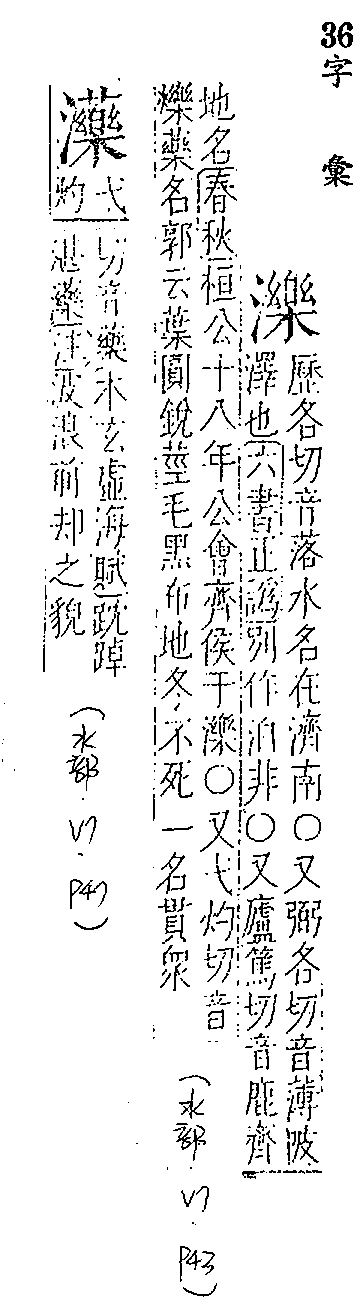 36
字彙
濼
歷各切音落水名在濟南○又弼各切音薄陂
澤也六書正譌別作泊非○又廬篤切音鹿齊
地名春秋桓公十八年公會齊侯于濼○又弋灼切音
爍藥名郭云葉圓銳莖毛黑布地冬不死一名貫衆
(水部.巳.P43)
灪
弋
灼
切音藥木玄虛海賦䟢踔
湛藥浮波浪前却之貌
(水部.巳.P47)